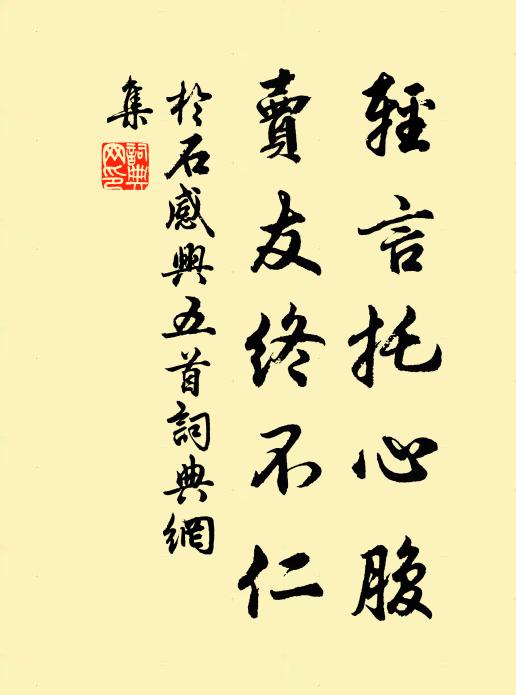 輕言托心腹
賣友終不仁
於石感興五首詞典網
集
詞典網印